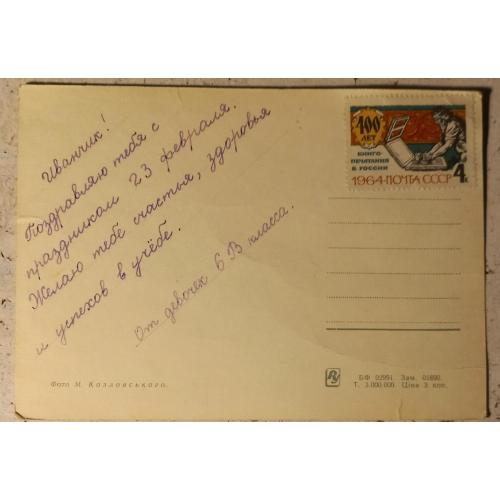 Иванчик!
Поздравляю тебя с
праздником 23 февраля.
Желаю тебе счастья, здоровья
и успехов в учёбе.
От девочек 6 В класса.
400
ЛЕТ
КНИГО-
ПЕЧАТАНИЯ
В РОССИИ
1964·ПОЧТА СССР 4к
Фото М. Козловського.
БФ 02991. Зам. 01890.
Т. 3.000.000. Ціна 3 коп.